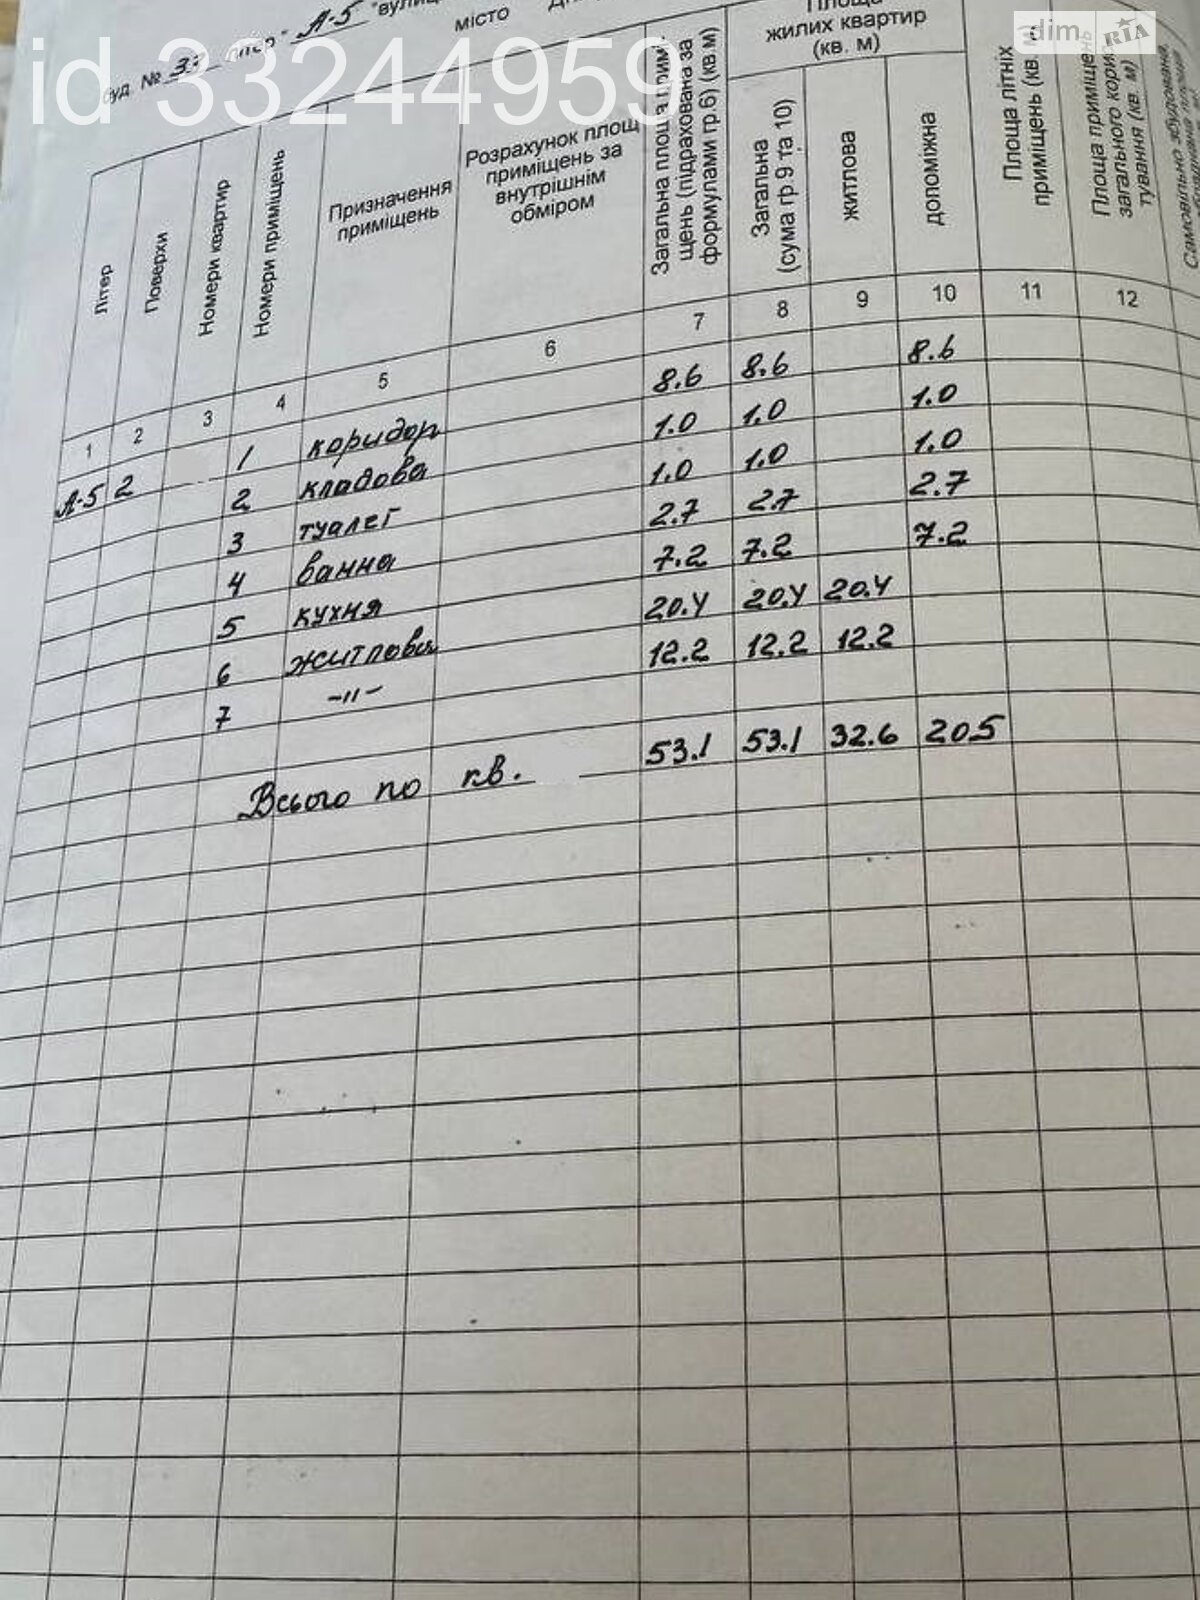 id 33244959
dim RIA
буд. № літер " А-5 "вулиц
місто
Літер
Поверхи
Номери квартир
Номери приміщень
Призначення
приміщень
Розрахунок площ
приміщень за
внутрішнім
обміром
Загальна площа примі-
щень (підрахована за
формулами гр.6) (кв.м)
Площа
жилих квартир
(кв. м)
Загальна
(сума гр 9 та 10)
житлова
допоміжна
Площа літніх
приміщень (кв. м
Площа приміщень
загального корис
тування (кв. м)
Самовільно збудована,
1 2 3 4 5 6 7 8 9 10 11 12
А-5 2 1 коридор 8.6 8.6 8.6
2 кладова 1.0 1.0 1.0
3 туалет 1.0 1.0 1.0
4 ванна 2.7 2.7 2.7
5 кухня 7.2 7.2 7.2
6 житлова 20.4 20.4 20.4
7 -"- 12.2 12.2 12.2
Всього по кв. 53.1 53.1 32.6 20.5